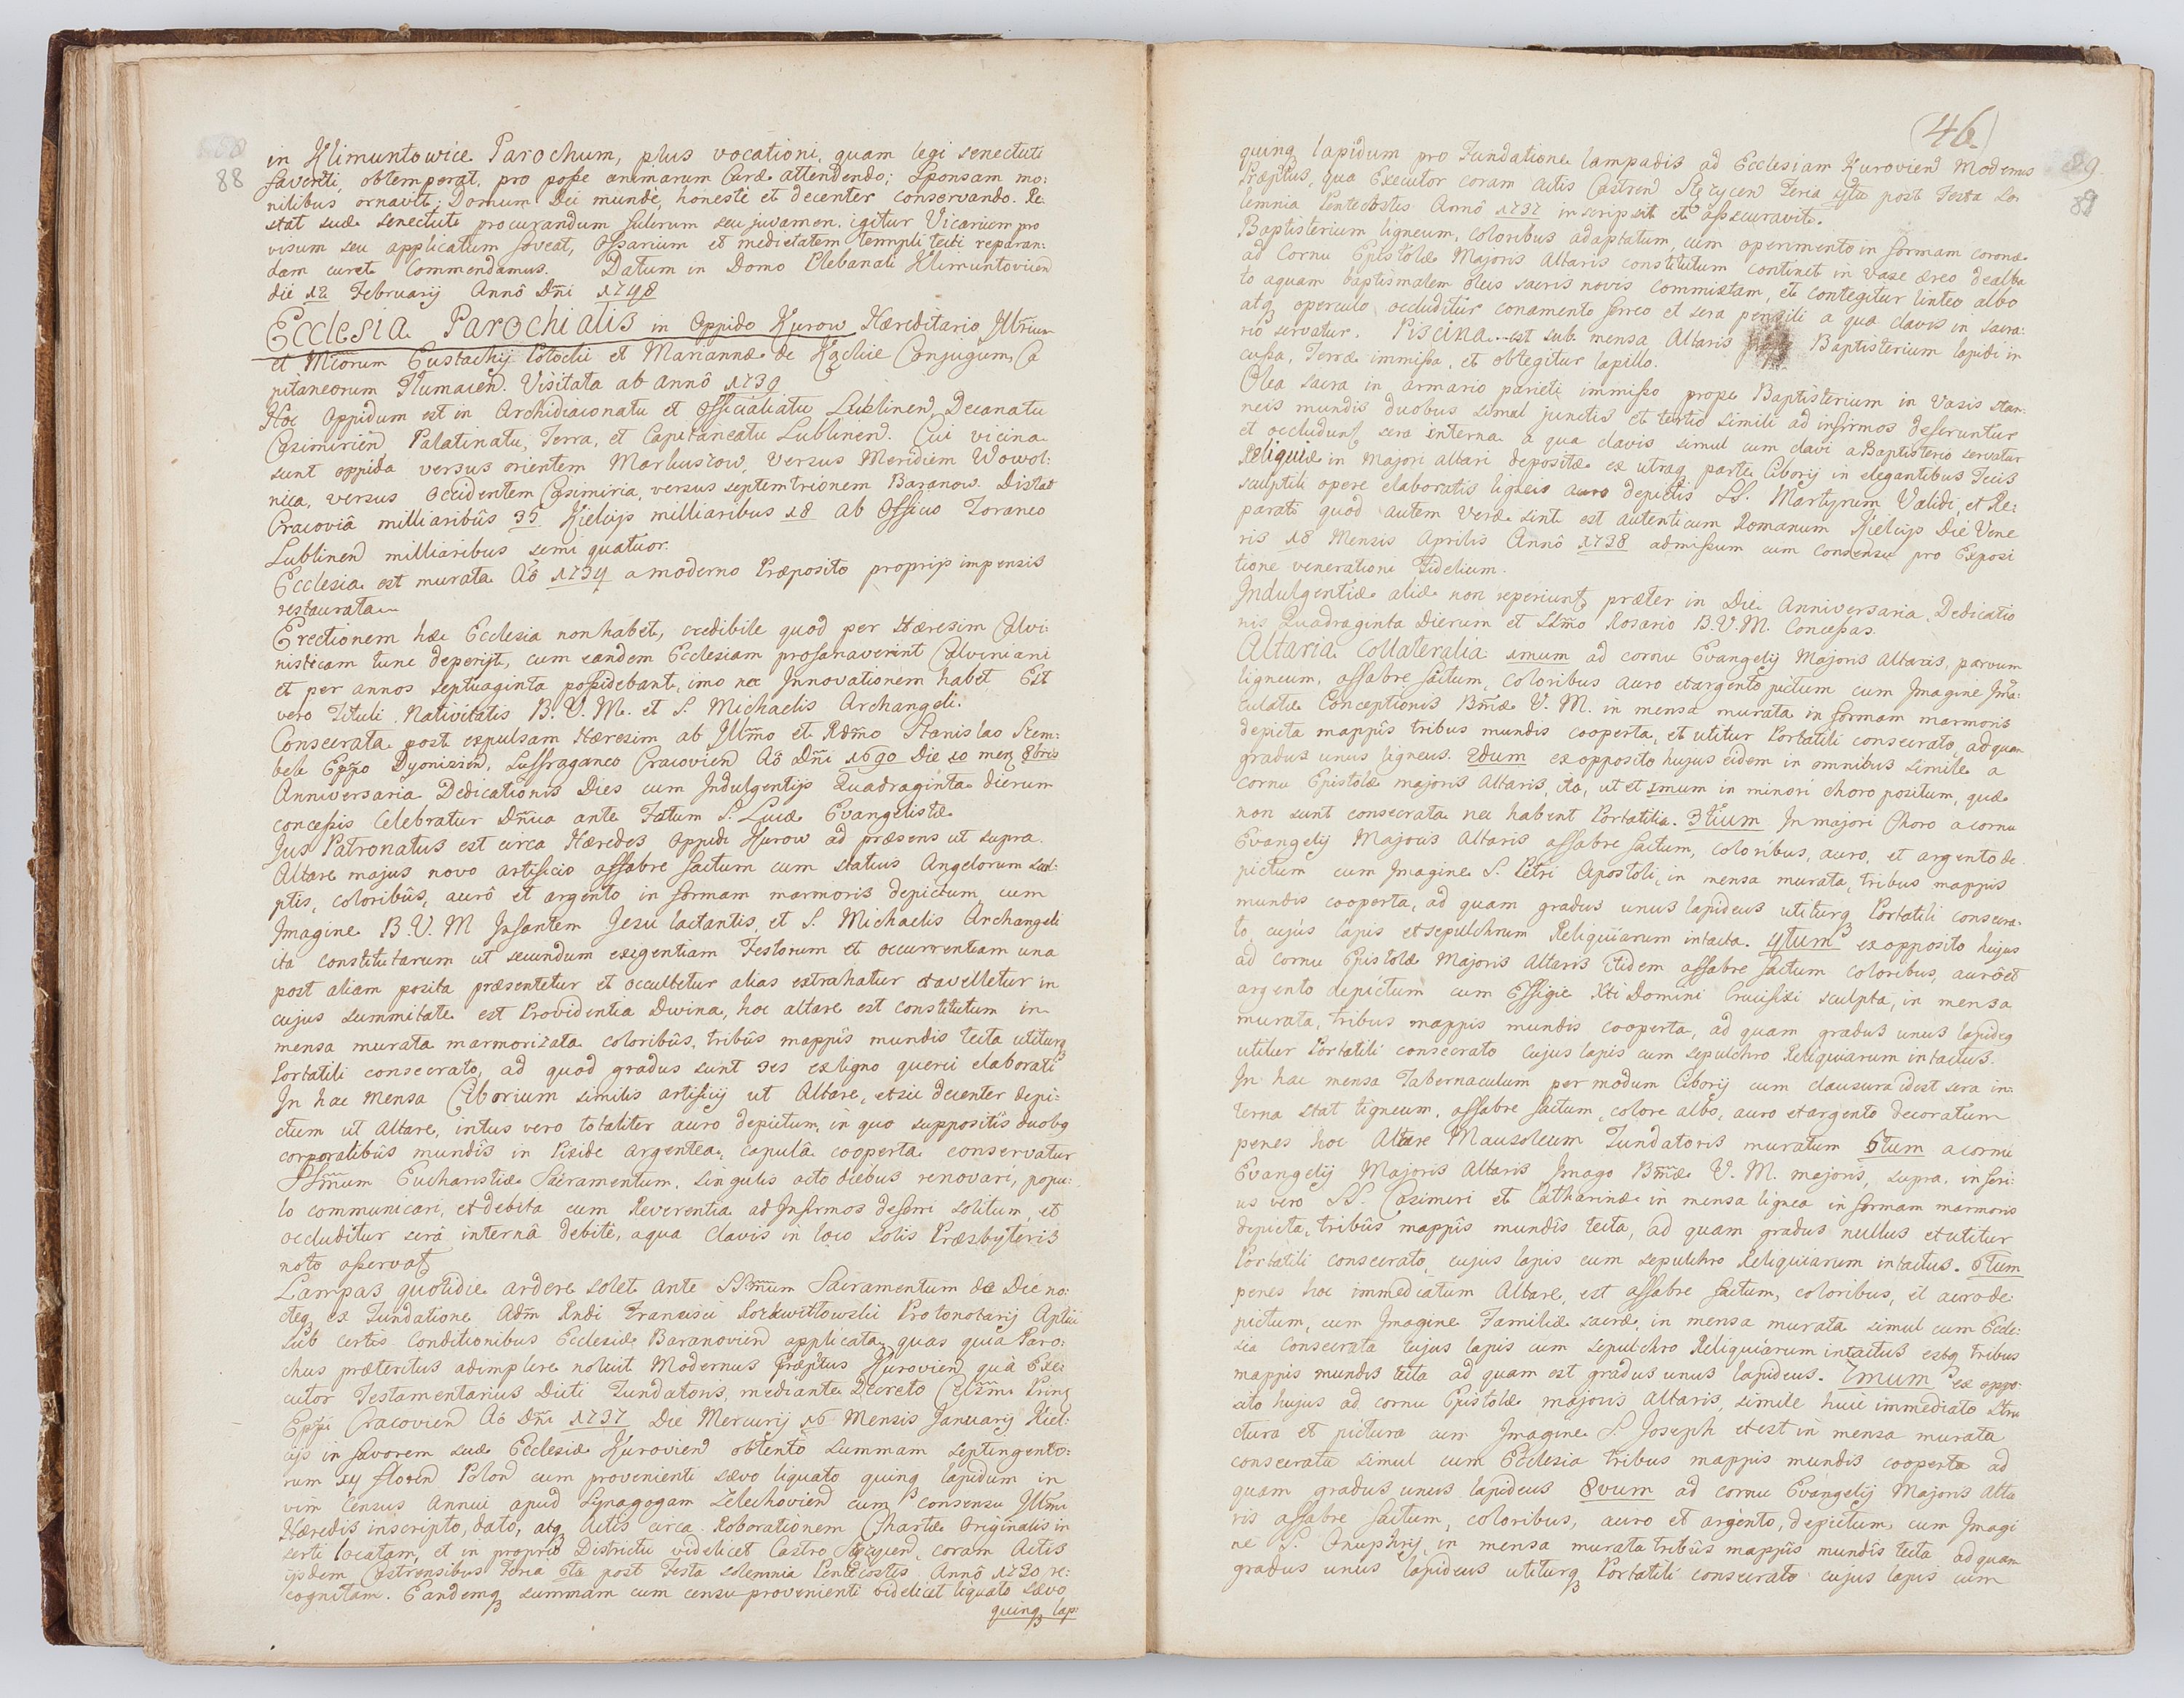 88
in Klimuntowice Parochum, plus vocationi, quam legi senectuti
faventi, obtemperat, pro posse animarum Curæ attendendo; Sponsam mo:
nilibus ornavit; Domum Dei mundè, honestè et decenter conservando. Re:
stat suæ senectuti procurandum fulcrum seu juvamen. igitur Vicarium pro
visum seu applicatum foveat, Ossarium et medietatem templi tecti reparan:
dam curet Commendamus. Datum in Domo Plebanali Klimuntovien̄
die 12 Februarij Annô Dn̄i 1748
Ecclesia Parochialis in Oppido Kurow Hæreditario Illr̄ium
et Mcorum Eustachij Potocki et Mariannæ de Kąckie Conjugum, Ca
pitaneorum Tlumacen̄. Visitata ab annô 1739
Hoc Oppidum est in Archidiaconatu et Officialiatu Lublinen̄ Decanatu
Casimirien̄ Palatinatu, Terra, et Capitaneatu Lublinen̄. Cui vicina
sunt oppida versus orientem Markuszow, versus Meridiem Wowol:
nica, versus Occidentem Casimiria, versus septemtrionem Baranow. Distat
Cracoviâ milliaribûs 35 Kielcijs milliaribus 18 ab Officio Foraneo
Lublinen̄ milliaribus semi quatuor.
Ecclesia est murata Aō 1734 a moderno Præposito proprijs impensis
restaurata
Erectionem hæc Ecclesia non habet, credibile quod per Hæresim Calvi:
nisticam tunc deperijt, cum eandem Ecclesiam profanaverint Calviniani
et per annos septuaginta possidebant, imo nec Innovationem habet Est
vero Tituli Nativitatis B. V. M. et S. Michaelis Archangeli.
Consecrata post expulsam Hæresim ab Illm̄o et Rdm̄o Stanislao Szem:
bek Epp̄o Dyonisien̄, Suffraganeo Cracovien̄ Aō Dn̄i 1690 Die 10 men̄ 8bris
Anniversaria Dedicationis Dies cum Indulgentijs Quadraginta dierum
concessis Celebratur Dn̄ica ante Fstum S. Lucæ Evangelistæ
Jus Patronatus est circa Hæredes Oppidi Kurow ad præsens ut supra.
Altare majus novo artificio affabre factum cum statuis Angelorum scul:
ptis, coloribûs, aurô et argento in formam marmoris depictum, cum
Imagine B. V. M Infantem Jesu lactantis, et S. Michaelis Archangeli
ita constitutarum ut secundum exigentiam Festorum et occurrentiam una
post aliam posita præsentetur et occultetur alias extrahatur et avelletur in
cujus summitate est Providentia Divina, hoc altare est constitutum in
mensa murata marmorizata coloribûs, tribûs mappîs mundis tecta utiturq
Portatili consecrato, ad quod gradus sunt 3es ex ligno querci elaborati
In hac Mensa Ciborium similis artificij ut Altare, et sic decenter depi:
ctum ut Altare, intus vero totaliter auro depictum, in quo suppositîs duobq
corporalibûs mundîs in Pixide argentea, cupulâ cooperta conservatur
SSm̄um Eucharistiæ Sacramentum, singulis octo diebus renovari, popu:
lo communicari, et debita cum Reverentia ad Infirmos deferri solitum, et
occluditur serâ internâ debitè, a qua Clavis in loco solis Præsbyteris
noto asservat
Lampas quotidie ardere solet ante SSm̄um Sacramentum de Die no:
cteq ex Fundatione Adm̄ Rndi Francisci Protonotarij Aplici
sub certis Conditionibus Ecclesiæ Baranovien̄ applicata, quas quia Paro:
chus præteritus adimplere noluit Modernus Præp̄tus Kurovien̄ quâ Exe:
cutor Testamentarius Dicti Fundatoris, mediante Decreto Celsm̄i Princ
Epp̄i Cracovien̄ Aō Dn̄i 1737 Die Mercurij 16 Mensis Januarij Kiel:
cijs in favorem suæ Ecclesiæ Kurovien̄ obtento summam septingento:
rum floren̄ Polon̄ cum provenienti sævo liquato quinq lapidum in
vim Census Annui apud Synagogam Zelechovien̄ cum consensu Illm̄i
Hæredis inscripto, dato, atq Actis circa Roborationem Chartæ Originalis in
serti locatam, et in proprio Districtu videlicet Castro Stęzycen̄, coram Actis
ijsdem Castrensibus Feria 6ta post Festa solemnia Pentecostes Annô 1720 re:
cognitam. Eandemq summam cum censu provenienti videlicet liquato sævo
quinq lap:
46
89
quinq lapidum pro Fundatione lampadis ad Ecclesiam Kurovien̄ Modernus
Præp̄tus, qua Executor coram actis Castren̄ Stęzycen̄ Feria 4ta post Festa So
lemnia Pentecostes Annô 1737 inscripsit et assecuravit.
Baptisterium ligneum, coloribus adaptatum, cum operimento in formam coronæ
ad Cornu Epistolæ Majoris Altaris constitutum continet in vase æreo dealba
to aquam baptismalem oleis sacris novis commixtam, et contegitur linteo albo
atq operculo occluditur conamento ferreo et sera pensili a qua clavis in sacra:
rio servatur. Piscina est sub mensa Altaris Baptisterium lapidi in
cussa, Terræ immissa, et obtegitur lapillo.
Olea sacra in armario parieti immisso prope Baptisterium in Vasis stan:
neis mundis duobus simul junctis et tertio simili ad infirmos deferuntur
et occludunt sera interna a qua clavis simul cum clavi a Baptisterio servatur
Reliquiæ in Majori altari depositæ ex utraq parte Ciborij in elegantibus Tecis
sculptili opere elaboratis ligneis auro depictis SS. Martyrum Validi, et Re:
parati quod autem veræ sint est autenticum Romanum Kielcijs Die Vene
ris 18 Mensis Aprilis Annô 1738 admissum cum consensu pro Exposi
tione venerationi Fidelium.
Indulgentiæ aliæ non reperiunt præter in Die Anniversaria Dedicatio
nis Quadraginta Dierum et SSm̄o Rosario B. V. M. Concessas.
Altaria Collateralia 1mum ad cornu Evangelij Majoris altaris, parvum
ligneum, affabre factum, coloribus auro et argento pictum cum Imagine Im̄a:
culatæ Conceptionis Bm̄æ V. M. in mensa murata in formam marmoris
depicta mappîs tribus mundis cooperta, et utitur Portatili consecrato, ad quam
gradus unus ligneus. 2dum ex opposito hujus eidem in omnibus simile a
cornu Epistolæ majoris Altaris, ita, ut et 1mum in minori choro positum, quæ
non sunt consecrata nec habent Portatilia. 3tium In majori Choro a cornu
Evangelij Majoris altaris affabre factum, coloribus, auro, et argento de
pictum cum Imagine S. Petri Apostoli, in mensa murata, tribus mappis
mundis cooperta, ad quam gradus unus lapideus utiturq Portatili consecra:
to, cujus lapis et sepulchrum Reliquiarum intacta. 4tum ex opposito hujus
ad cornu Epistolæ Majoris Altaris itidem affabre factum coloribus, auro et
argento depictum cum Effigie Xti Domini Crucifixi sculpta, in mensa
murata, tribus mappis mundis cooperta, ad quam gradus unus lapideq
utitur Portatili consecrato cujus lapis cum sepulchro Reliquiarum intactus.
In hac mensa Tabernaculum per modum Ciborij cum clausura idest sera in:
terna stat ligneum, affabre factum, colore albo, auro et argento decoratum
penes hoc Altare Mausoleum Fundatoris muratum 5tum a cornu
Evangelij Majoris Altaris Imago Bm̄æ V. M. majoris, supra, inferi:
us vero SS. Casimiri et Catharinæ in mensa lignea in formam marmoris
depicta, tribûs mappîs mundîs tecta, ad quam gradus nullus et utitur
Portatili consecrato, cujus lapis cum sepulchro Reliquiarum intactus. 6tum
penes hoc immediatum Altare, est affabre factum, coloribus, et auro de:
pictum, cum Imagine Familiæ sacræ, in mensa murata simul cum Eccle:
sia consecrata cujus lapis cum sepulchro Reliquiarum intactus estq tribus
mappis mundis tecta ad quam est gradus unus lapideus. 7mum ex oppo
sito hujus ad cornu Epistolæ majoris altaris, simile huic immediato stru
ctura et pictura cum Imagine S Joseph et est in mensa murata
consecrata simul cum Ecclesia tribus mappis mundis cooperta ad
quam gradus unus lapideus 8vum ad cornu Evangelij Majoris Alta
ris affabre factum, coloribus, auro et argento, depictum, cum Imagi
ne S. Onuphrij in mensa murata tribûs mappîs mundîs tecta ad quam
gradus unus lapideus utiturq Portatili consecrato cujus lapis cum